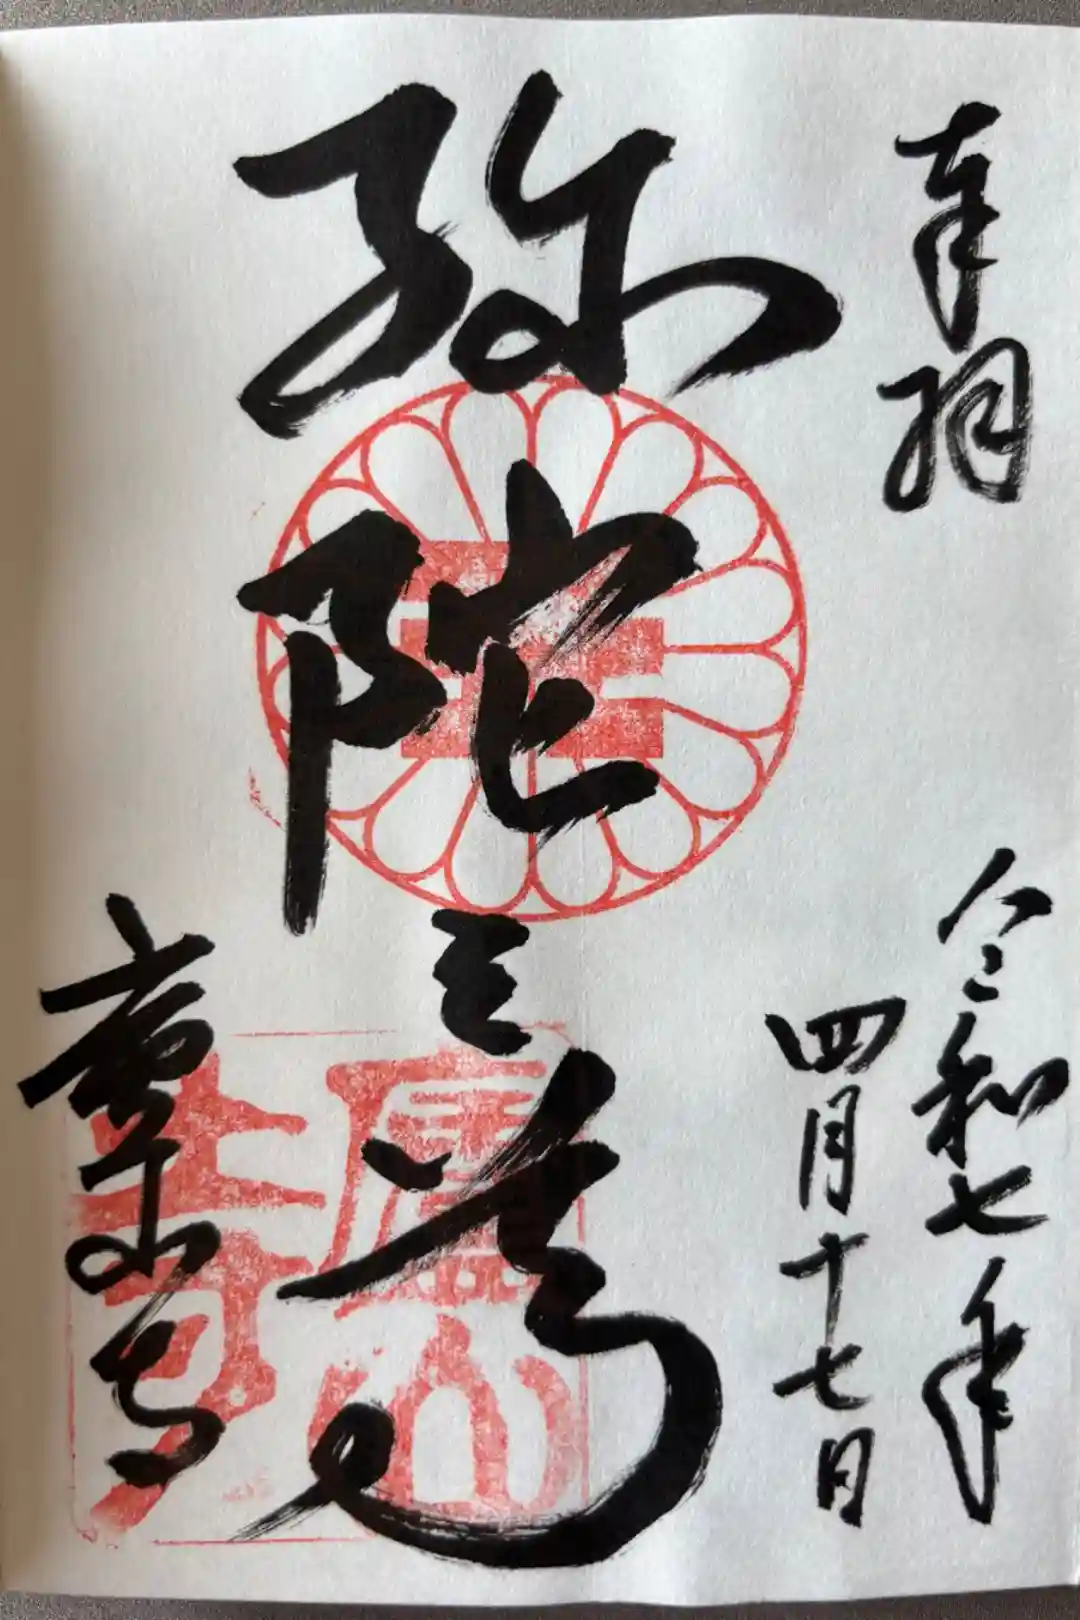 奉拝
令和七年
四月十七日
弥陀三尊
廬山寺
廬山
寺